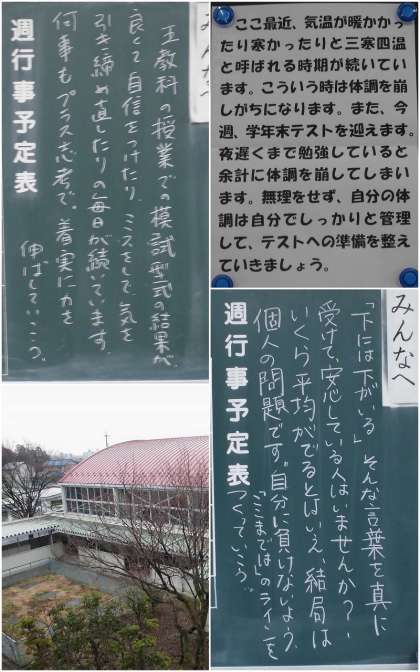 みんなへ
五教科の授業での模試型式の結果が
良くて自信をつけたり、ミスをして気を
引き締め直したりの毎日が続いています。
何事もプラス志考で。着実に力を
伸ばしていこう。
週行事予定表
ここ最近、気温が暖かかっ
たり寒かったりと三寒四温
と呼ばれる時期が続いてい
ます。こういう時は体調を崩
しがちになります。また、今
週、学年末テストを迎えます。
夜遅くまで勉強していると
余計に体調を崩してしまい
ます。無理をせず、自分の体
調は自分でしっかりと管理
して、テストへの準備を整え
ていきましょう。
みんなへ
「下には下がいる」そんな言葉を真に
受けて、安心している人はいませんか？
いくら平均がでるとはいえ、結局は
個人の問題です。自分に負けないよう、
「ここまでは」のラインを
つくっていこう。
週行事予定表